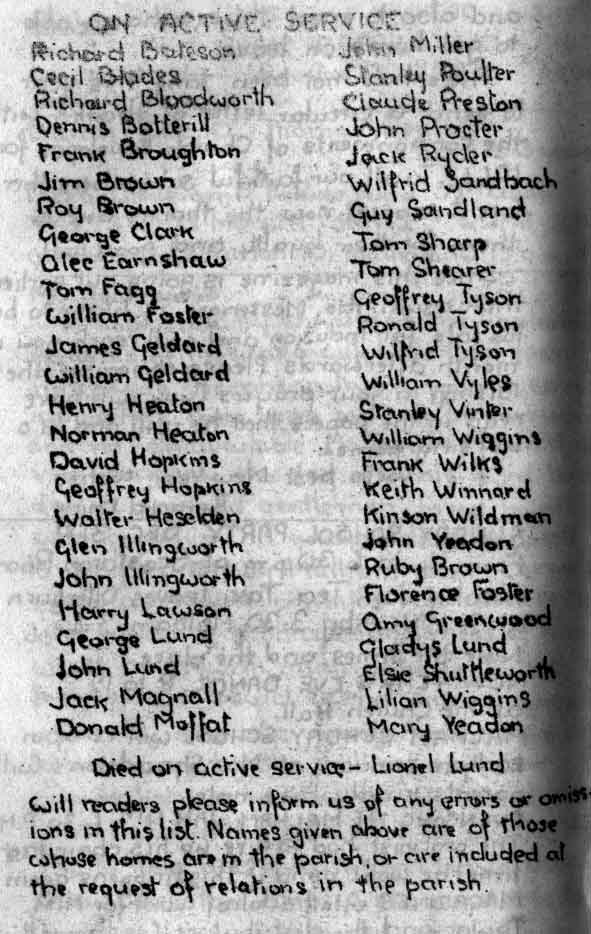 ON ACTIVE SERVICE
Richard Bateson
Cecil Blades
Richard Bloodworth
Dennis Botterill
Frank Broughton
Jim Brown
Roy Brown
George Clark
Alec Earnshaw
Tom Fagg
William Foster
James Geldard
William Geldard
Henry Heaton
Norman Heaton
David Hopkins
Geoffrey Hopkins
Walter Heselden
Glen Illingworth
John Illingworth
Harry Lawson
George Lund
John Lund
Jack Magnall
Donald Moffat
John Miller
Stanley Poulter
Claude Preston
John Procter
Jack Ryder
Wilfrid Sandbach
Guy Sandland
Tom Sharp
Tom Shearer
Geoffrey Tyson
Ronald Tyson
Wilfrid Tyson
William Vyles
Stanley Vinter
William Wiggins
Frank Wilks
Keith Winnard
Kinson Wildman
John Yeadon
Ruby Brown
Florence Foster
Amy Greenwood
Gladys Lund
Elsie Shuttleworth
Lilian Wiggins
Mary Yeadon
Died on active service - Lionel Lund
Will readers please inform us of any errors or omiss-
ions in this list. Names given above are of those
whose homes are in the parish, or are included at
the request of relations in the parish.